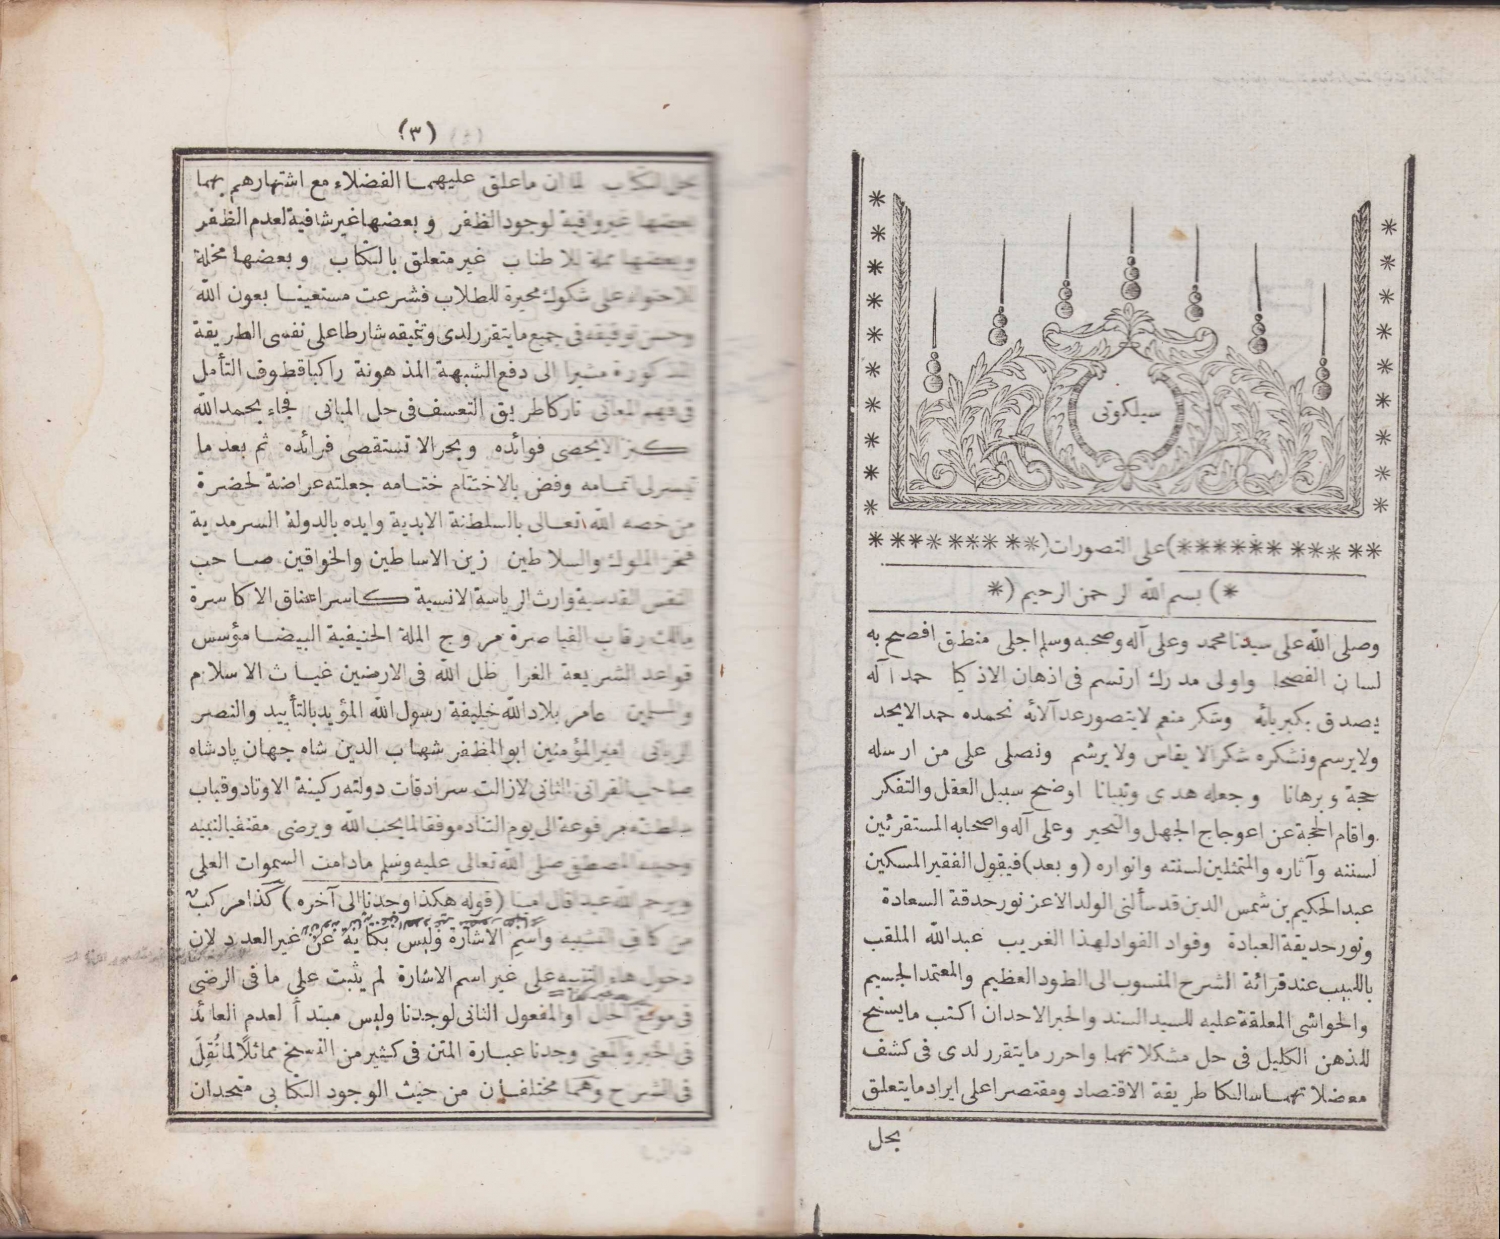 سيلكوتى
******** ****)على التصورات(****** *** **
*) بسم الله الرحمن الرحيم (*
وصلى الله على سيدنا محمد وعلى آله وصحبه وسلم اجلى منطق افصح به
لسان الفصحا واولى مدرك ارتسم فى اذهان الاذكيا حمد آله
يصدق بكبريائه وشكر منعم لا يتصور عد آلائه نحمده حمدا لا يحد
ولا يرسم ونشكره شكرا لا يقاس ولا يرشم ونصلى على من ارسله
حجة وبرهانا وجعله هدى وتبيانا اوضح سبيل العقل والتفكر
واقام الحجة عن اعوجاج الجهل والتحير وعلى آله واصحابه المستقرئين
لسننه وآثاره والمتمثلين لسنته وانواره (وبعد) فيقول الفقير المسكين
عبد الحكيم بن شمس الدين قد سألنى الولد الاعز نور حدقة السعادة
ونور حديقة العبادة وفواد الفواد لهذا الغريب عبد الله الملقب
باللبيب عند قرائة الشرح المنسوب الى الطود العظيم والمعتمد الجسيم
والحواشى المعلقة عليه للسيد السند والحبر الاحد ان اكتب ما يسنح
للذهن الكليل فى حل مشكلاتهما واحرر ما يتقرر لدى فى كشف
معضلاتهما سالكا طريقة الاقتصاد ومقتصرا على ايراد ما يتعلق
بحل
(٣)
بحل الكتاب لما ان ما علق عليهما الفضلاء مع اشتهارهم بهما
بعضها غير وافية لوجود الظفر وبعضها غير شافية لعدم الظفر
وبعضها مملة للاطناب غير متعلق بالكتاب وبعضها مخلة
للاحتواء على شكوك محيرة للطلاب فشرعت مستعينا بعون الله
وحسن توفيقه فى جميع ما يتقرر لدى وتنميقه شارطا على نفسى الطريقة
المذكورة مشيرا الى دفع الشبهة المذهونة راكبا قطوف التأمل
فى فهم المعانى تاركا طريق التعسف فى حل المبانى فجاء بحمد الله
كنزا لا يحصى فوائده وبحرا لا تستقصى فرائده ثم بعد ما
تيسر لى اتمامه وفض بالاختتام ختامه جعلته عراضة لحضرة
من خصه الله تعالى بالسلطنة الابدية وايده بالدولة السرمدية
فخر الملوك والسلاطين زين الاساطين والخواقين صاحب
النفس القدسية وارث الرياسة الانسية كاسر اعناق الاكاسرة
مالك رقاب القياصرة مروج الملة الحنيفية البيضا مؤسس
قواعد الشريعة الغرا ظل الله فى الارضين غياث الاسلام
والمسلمين عامر بلاد الله خليفة رسول الله المؤيد بالتأييد والنصر
الربانى امير المؤمنين ابو المظفر شهاب الدين شاه جهان پادشاه
صاحب القرانى الثانى لازالت سرادقات دولته ركينة الاوتاد وقباب
سلطنته مرفوعة الى يوم التناد موفقا لما يحب الله ويرضى مقتفيا لنبيه
وحبيبه المصطفى صلى الله تعالى عليه وسلم مادامت السموات العلى
ويرحم الله عبدا قال امينا (قوله هكذا وجدنا الى آخره) كذا مركب
من كاف التشبيه واسم الاشارة وليس بكناية عن غير العدد لان
دخول هاء التنبيه على غير اسم الاشارة لم يثبت على ما فى الرضى
فى موقع الحال او المفعول الثانى لوجدنا وليس مبتدأ لعدم العائد
فى الخبر والمعنى وجدنا عبارة المتن فى كثير من النسخ مماثلا لما نقل
فى الشرح وهما مختلفان من حيث الوجود الكتابى متحدان